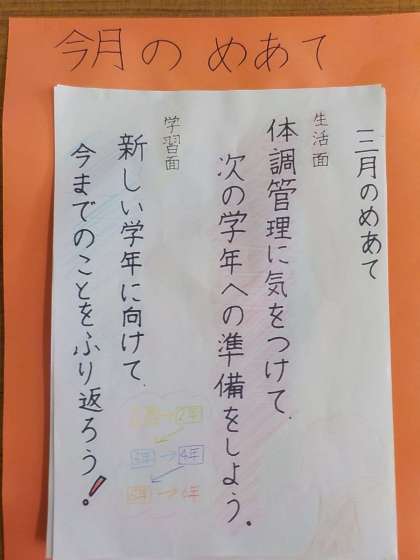 今月のめあて
三月のめあて
生活面
体調管理に気をつけて、
次の学年への準備をしよう。
学習面
新しい学年に向けて、
今までのことをふり返ろう!
→2年
3年→4年
5年→6年